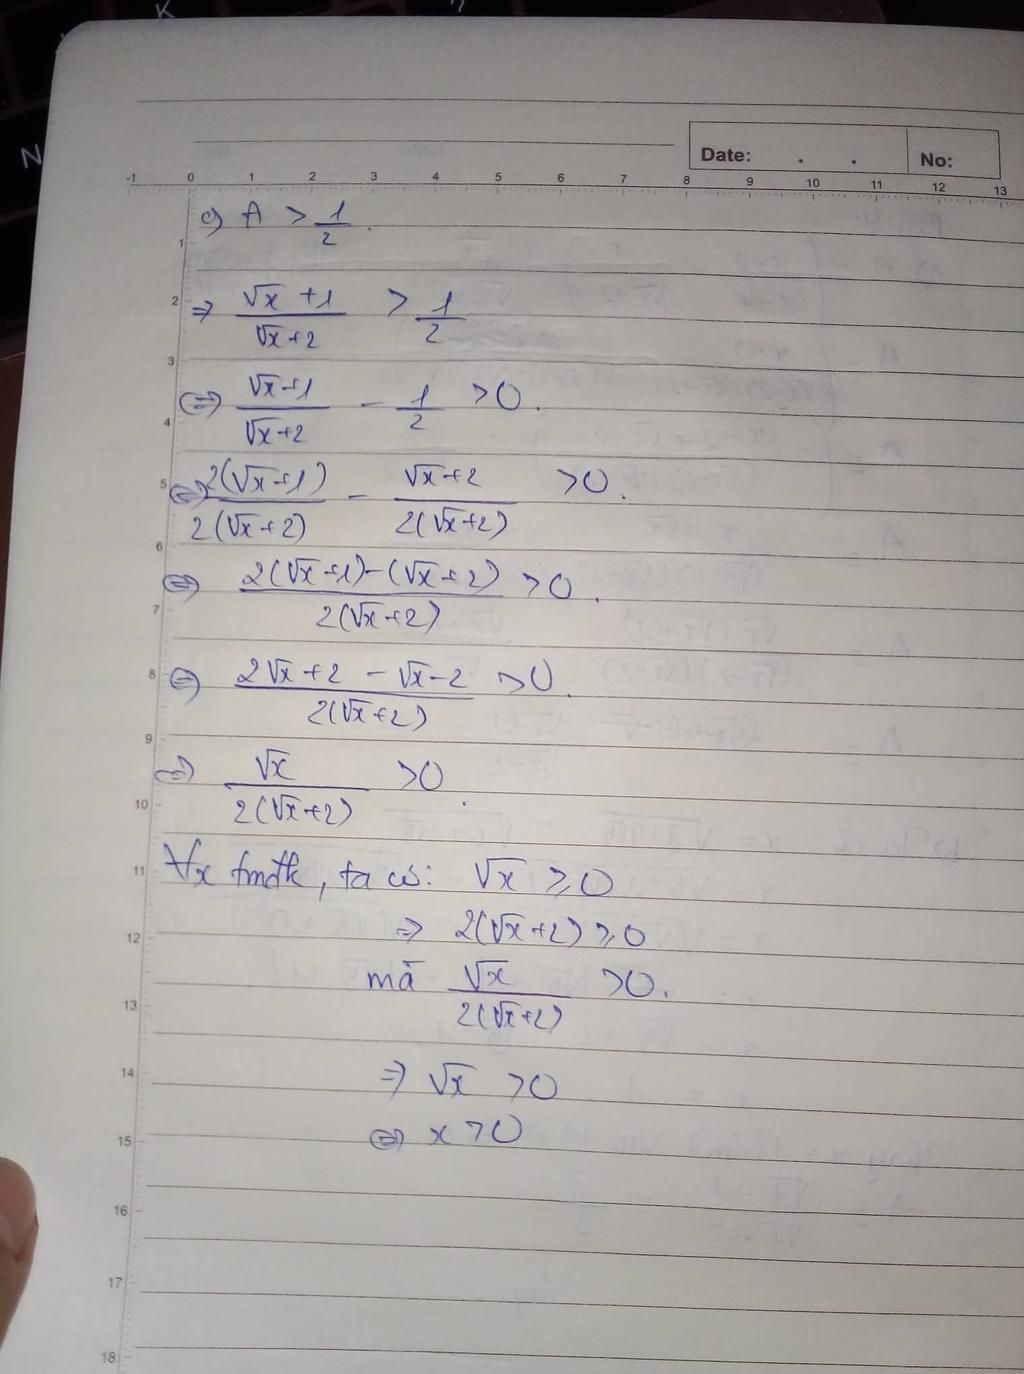 K
N
Date: . . No:
-1 0 1 2 3 4 5 6 7 8 9 10 11 12 13
c) A > 1/2.
1
2 => (√x +1)/(√x+2) > 1/2
3
<=> (√x+1)/(√x+2) - 1/2 >0.
4
5 <=> 2(√x+1)/2(√x+2) - (√x+2)/2(√x+2) >0.
6
<=> (2(√x+1)-(√x+2))/2(√x+2) >0.
7
8 <=> (2√x+2 -√x-2)/2(√x+2) >0.
9
<=> √x/2(√x+2) >0.
10
11 ∀x tmđk, ta có: √x ≥0
12 => 2(√x+2) ≥0
mà √x/2(√x+2) >0.
13
14 => √x >0
15 <=> x >0
16
17
18